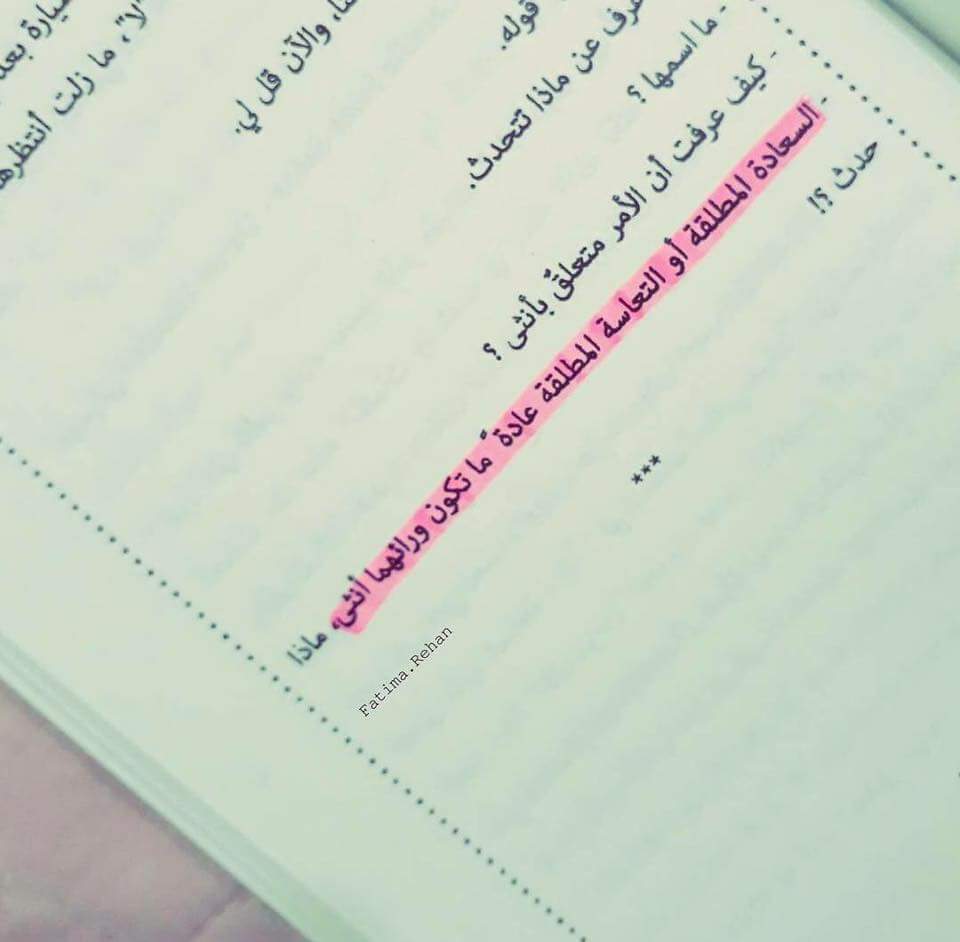 "لا"، ما زلت أنتظرها
والآن قل لي.
قوله.
عن ماذا تتحدث.
- ما اسمها ؟
- كيف عرفت أن الأمر متعلقٌ بأنثى ؟
- السعادة المطلقة أو التعاسة المطلقة عادةً ما تكون ورائهما أنثى، ماذا
حدث ؟!
***
Fatima.Rehan